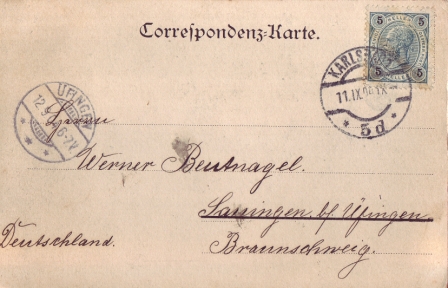 Correspondenz-Karte.
5 5
5 5
KARLSBAD
11.IX.
5d
ÜFINGEN
12.9.
6-7N
Herrn
Werner Beutnagel.
Sauingen b/ Üfingen
Braunschweig.
Deutschland.